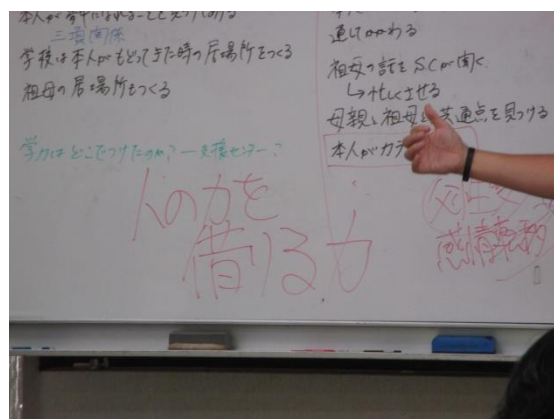 本人が夢中になれることを見つける
三項関係
学校は本人がもどってきた時の居場所をつくる
祖母の居場所もつくる
学力はどこでつけたのか？ー支援センター？
人の力を
借りる力
通してかかわる
祖母の話をSCが聞く
↳忙しくさせる
母親と祖母の共通点を見つける
本人がカラ
感情転移